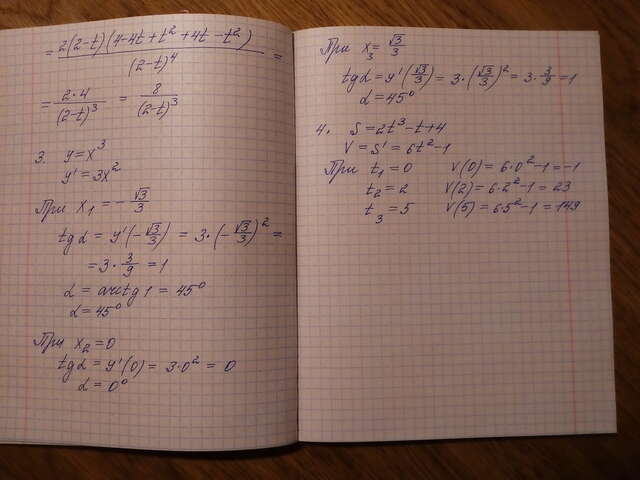 = 2(2-t)(4-4t+t²+4t-t²) / (2-t)⁴ =
= 2·4 / (2-t)³ = 8 / (2-t)³
3. y=x³
y'=3x²
При x₁ = -√3/3
tgα = y'(-√3/3) = 3·(-√3/3)² =
= 3·3/9 = 1
α = arctg1 = 45°
α=45°
При x₂=0
tgα = y'(0) = 3·0² = 0
α=0°
При x₃ = √3/3
tgα = y'(√3/3) = 3·(√3/3)² = 3·3/9 = 1
α=45°
4. S=2t³-t+4
V=S'=6t²-1
При t₁=0 V(0)=6·0²-1=-1
t₂=2 V(2)=6·2²-1=23
t₃=5 V(5)=6·5²-1=149